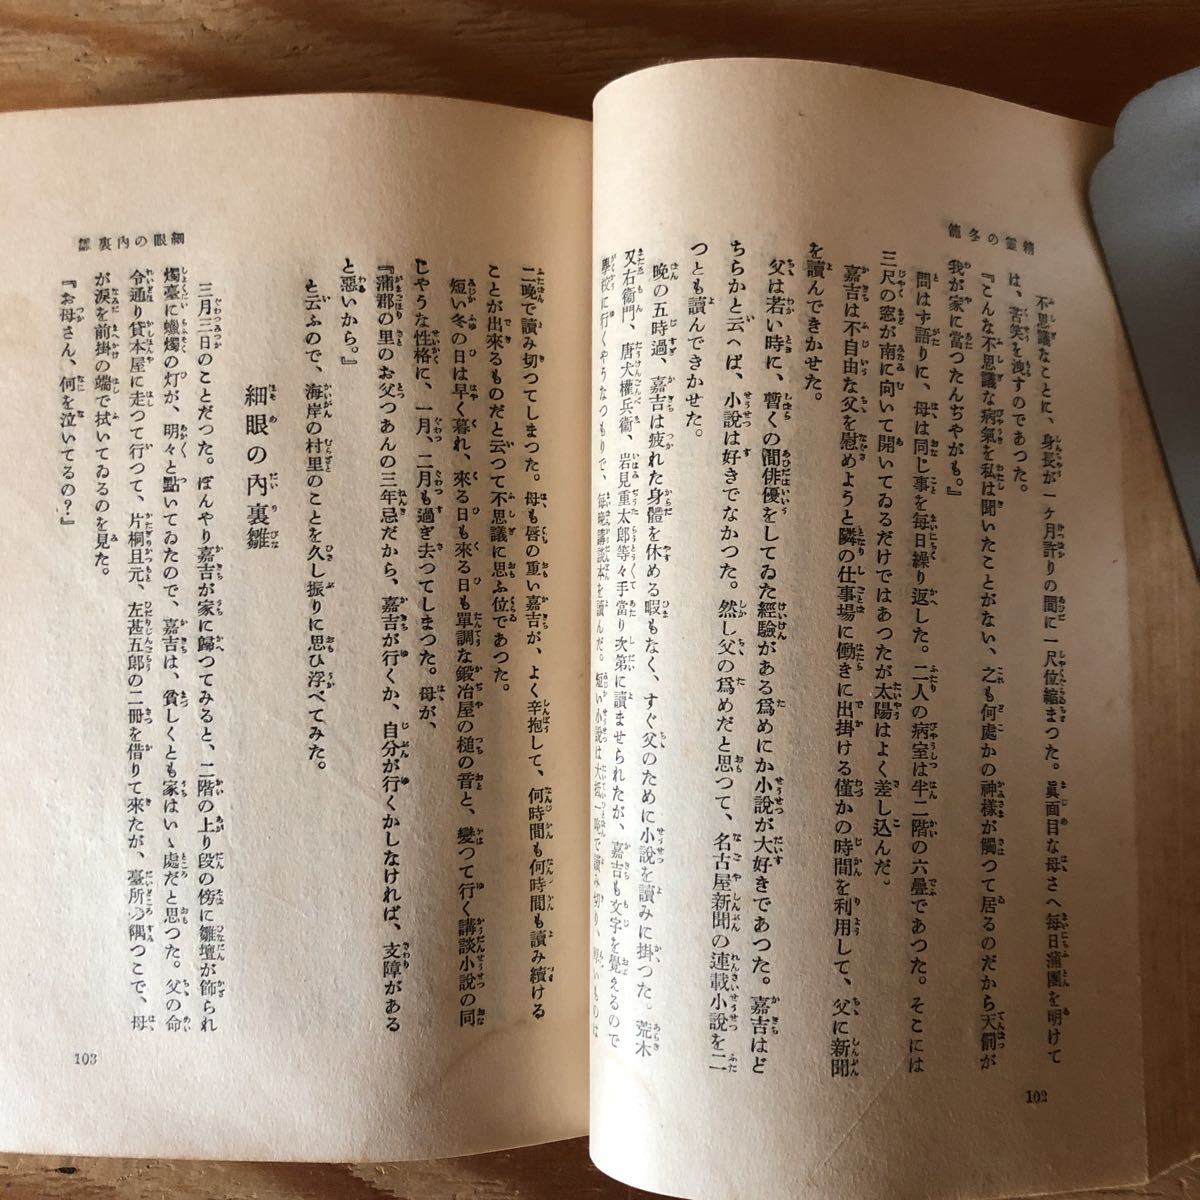 精靈の冬籠
不思議なことに、身長が一ケ月許りの間に一尺位縮まつた。眞面目な母さへ毎日蒲團を明けて
は、苦笑を洩すのであつた。
『こんな不思議な病氣を私は聞いたことがない、之も何處かの神樣が觸つて居るのだから天罰が
我が家に當つたんぢやがも。』
問はず語りに、母は同じ事を毎日繰り返した。二人の病室は半二階の六疊であつた。そこには
三尺の窓が南に向いて開いてゐるだけではあつたが太陽はよく差し込んだ。
嘉吉は不自由な父を慰めようと隣の仕事場に働きに出掛ける僅かの時間を利用して、父に新聞
を讀んできかせた。
父は若い時に、暫くの間俳優をしてゐた經驗がある爲めにか小說が大好きであつた。嘉吉はど
ちらかと云へば、小說は好きでなかつた。然し父の爲めだと思つて、名古屋新聞の連載小說を二
つとも讀んできかせた。
晚の五時過、嘉吉は疲れた身體を休める暇もなく、すぐ父のために小說を讀みに掛つた。荒木
又右衞門、唐犬權兵衞、岩見重太郎等々手當り次第に讀ませられたが、嘉吉も文字を覺えるので
學校に行くやうなつもりで、毎晚講談本を讀んだ。短い小說は大抵一晚で讀み切り、長いものは
102
二晚で讀み切つてしまつた。母も唇の重い嘉吉が、よく辛抱して、何時間も何時間も讀み續ける
ことが出來るものだと云つて不思議に思ふ位であつた。
短い冬の日は早く暮れ、來る日も來る日も單調な鍛冶屋の槌の音と、變つて行く講談小說の同
じやうな性格に、一月、二月も過ぎ去つてしまつた。母が、
『蒲郡の里のお父つあんの三年忌だから、嘉吉が行くか、自分が行くかしなければ、支障がある
と惡いから。』
と云ふので、海岸の村里のことを久し振りに思ひ浮べてみた。
細眼の內裏雛
三月三日のことだつた。ぼんやり嘉吉が家に歸つてみると、二階の上り段の傍に雛壇が飾られ
燭臺に蠟燭の灯が、明々と點いてゐたので、嘉吉は、貧しくとも家はいゝ處だと思つた。父の命
令通り貸本屋に走つて行つて、片桐且元、左甚五郎の二冊を借りて來たが、臺所の隅つこで、母
が淚を前掛の端で拭いてゐるのを見た。
『お母さん、何を泣いてるの？』
細眼の內裏雛
103